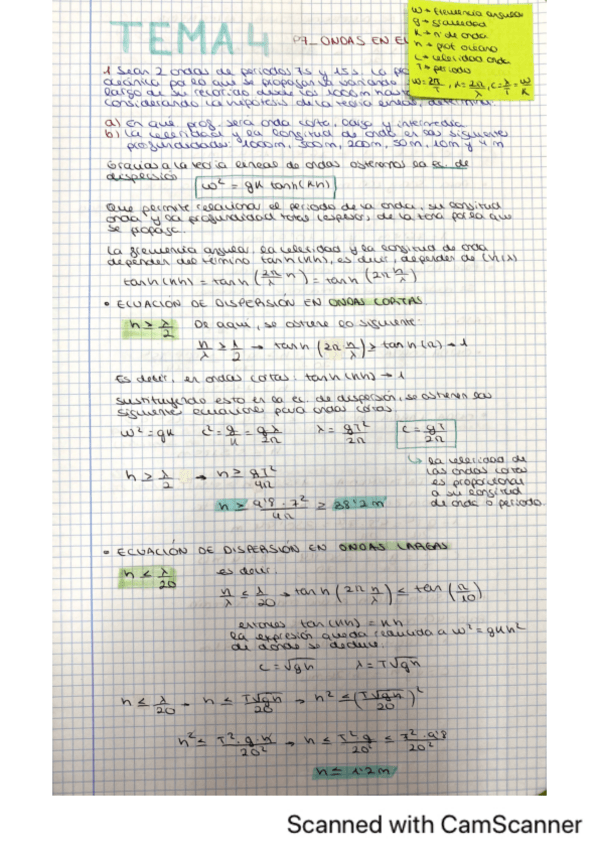 TEMA 4
P7_ONDAS EN
ω → frecuencia angular
g → gravedad
K → nº de onda
h → prof. océano
c → celeridad onda
T → periodo
ω = 2π/T , K = 2π/λ , c = λ/T = ω/K
1. Sean 2 ondas de periodos 7s y 15s. La
oceánica por la que se propagan va variando
largo de su recorrido desde los 1000m hasta
considerando la hipótesis de la teoría lineal, determina:
a) en que prof. será onda corta, larga y intermedia
b) La celeridad y la longitud de onda en las siguientes
profundidades: 1000m, 500m, 200m, 50m, 10m y 4m
Gracias a la teoría lineal de ondas obtenemos la ec. de
dispersión
ω² = gK tanh(Kh)
Que permite relacionar el periodo de la onda, su longitud
onda y la profundidad total (espesor) de la zona por la que
se propaga.
La frecuencia angular, la celeridad y la longitud de onda,
dependen del término tanh(Kh), es decir, depender de (h/λ)
tanh(Kh) = tanh(2π/λ h) = tanh(2π h/λ)
• ECUACIÓN DE DISPERSIÓN EN ONDAS CORTAS
h ≥ λ/2 De aqui, se obtiene lo siguiente:
h/λ ≥ 1/2 → tanh(2π h/λ) ≥ tanh(π) → 1
Es decir, en ondas cortas: tanh(Kh) → 1
Sustituyendo esto en la ec. de dispersión, se obtienen las
siguientes ecuaciones para ondas cortas
ω² = gK c² = g/K = gλ/2π λ = gT²/2π c = gT/2π
↳ la celeridad de
las ondas cortas
es proporcional
a su longitud
de onda o periodo.
h ≥ λ/2 → h ≥ gT²/4π
h ≥ 9'8 · 7²/4π ≥ 38'2 m
• ECUACIÓN DE DISPERSIÓN EN ONDAS LARGAS
h ≤ λ/20 es decir:
h/λ ≤ λ/20 → tanh(2π h/λ) ≤ tan(π/10)
entonces tan(Kh) = Kh
la expresión queda reducida a ω² = gKh²
de donde se deduce:
c = √gh λ = T√gh
h ≤ λ/20 → h ≤ T√gh/20 → h² ≤ (T√gh/20)²
h² ≤ T² · g · h/20² → h ≤ T²g/20² ≤ 7² · 9'8/20²
h ≤ 1'2 m
Scanned with CamScanner